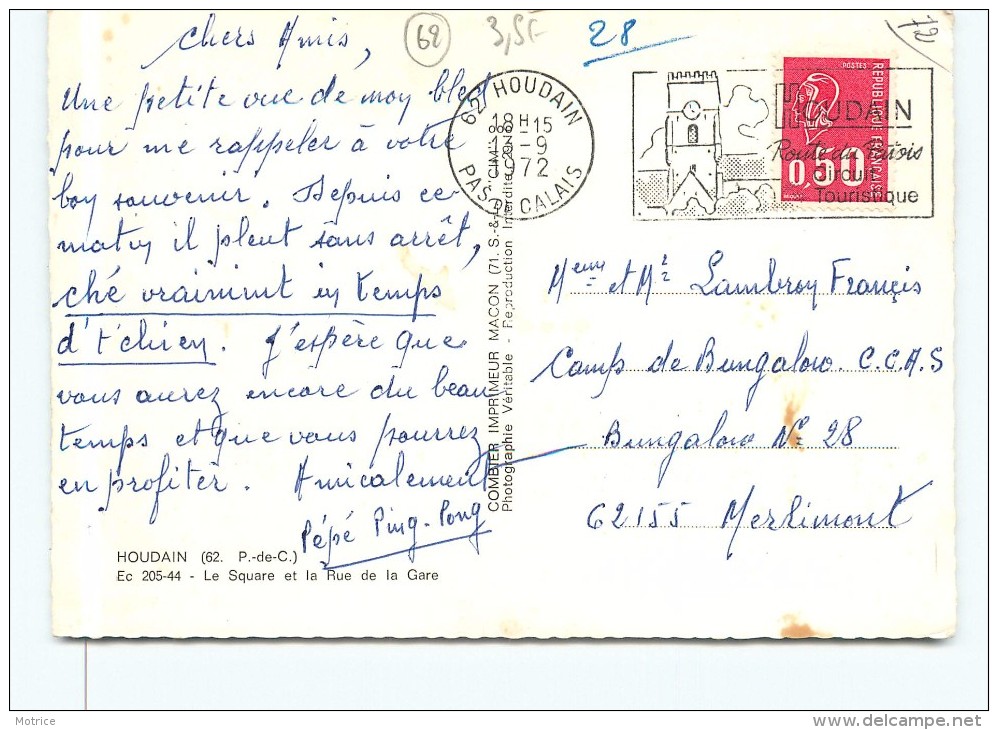 Chers Amis,
Une petite vue de moy bled
pour me rappeler à votre
boy souvenir. Depuis ce
matiy il pleut sans arrêt,
ché vraimint iy temps
d't'chiey. J'espère que
vous aurez encore du beau
temps et que vous pourrez
en profiter. Amicalement
Pépé Ping-Pong
HOUDAIN (62. P.-de-C.)
Ec 205-44 - Le Square et la Rue de la Gare
COMBIER IMPRIMEUR MACON (71. S.-&-L.) "CIM"
Photographie Véritable - Reproduction Interdite
62
3,5F
28
72
62 HOUDAIN
18H-15
13-9
1972
PAS DE CALAIS
HOUDAIN
Route du
Circuit
Touristique
POSTES
REPUBLIQUE FRANÇAISE
0,50
Meme et Mr Lambroy Françis
Camp de Bungalow C.C.A.S
Bungalow No 28
62155 Merlimont
Motrice
delcampe.net